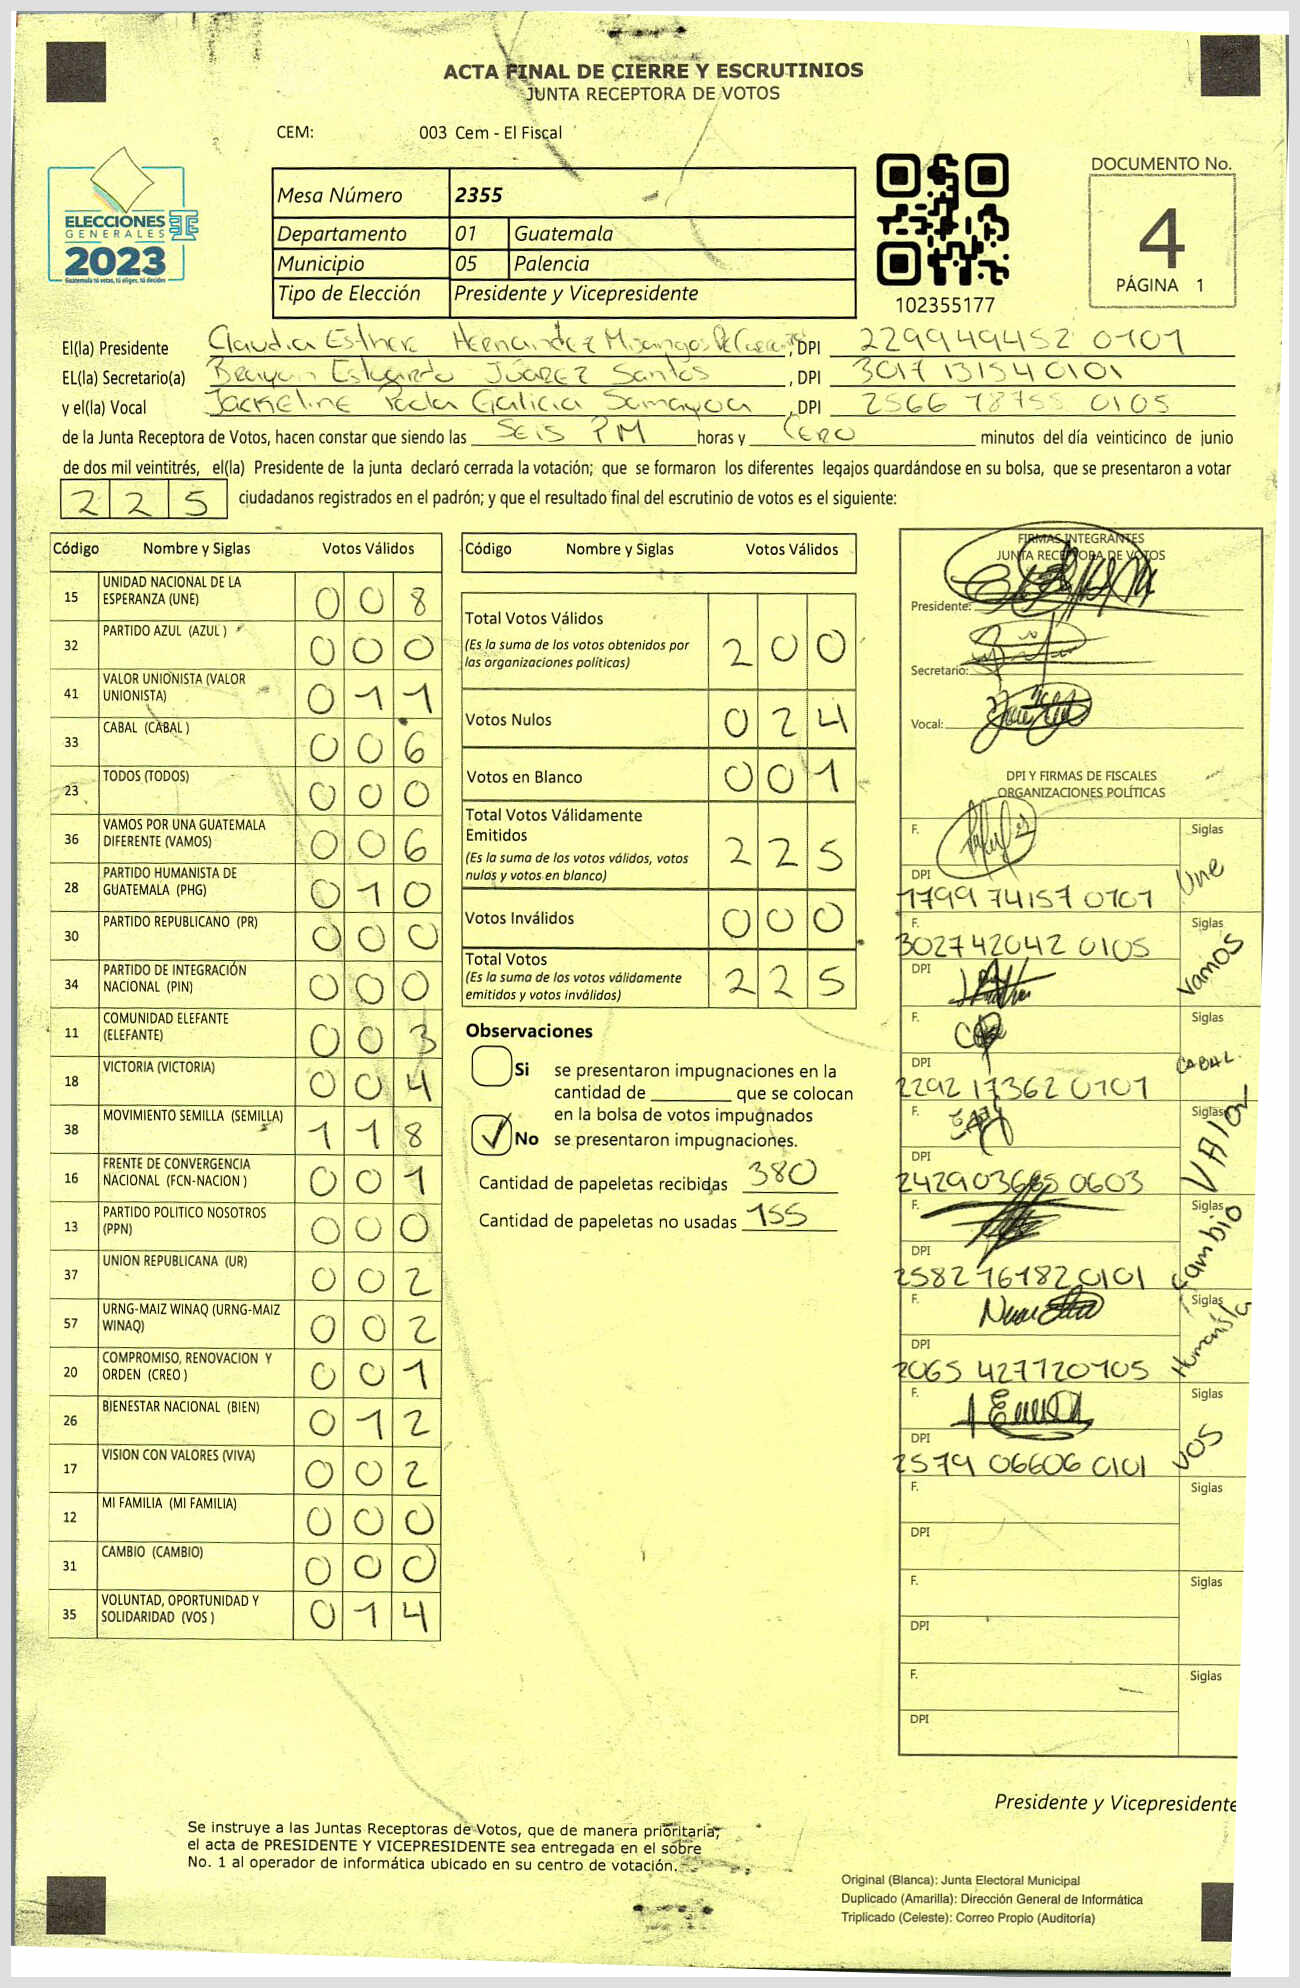 ACTA FINAL DE CIERRE Y ESCRUTINIOS
JUNTA RECEPTORA DE VOTOS
CEM: 003 Cem - El Fiscal
ELECCIONES
GENERALES
2023
Guatemala tú votas, tú eliges, tú decides
Mesa Número 2355
Departamento 01 Guatemala
Municipio 05 Palencia
Tipo de Elección Presidente y Vicepresidente
102355177
DOCUMENTO No.
4
PÁGINA 1
El(la) Presidente Claudia Esther Hernandez , DPI 229949452 0101
EL(la) Secretario(a) Brayan Estuardo JUÁREZ Santos , DPI 3017 13154 0101
y el(la) Vocal Jackeline Paola Galicia Samayoa , DPI 2566 78755 0105
de la Junta Receptora de Votos, hacen constar que siendo las SEIS PM horas y CERO minutos del día veinticinco de junio
de dos mil veintitrés, el(la) Presidente de la junta declaró cerrada la votación; que se formaron los diferentes legajos guardándose en su bolsa, que se presentaron a votar
225 ciudadanos registrados en el padrón; y que el resultado final del escrutinio de votos es el siguiente:
Código Nombre y Siglas Votos Válidos
15 UNIDAD NACIONAL DE LA ESPERANZA (UNE) 008
32 PARTIDO AZUL (AZUL ) 000
41 VALOR UNIONISTA (VALOR UNIONISTA) 011
33 CABAL (CABAL ) 006
23 TODOS (TODOS) 000
36 VAMOS POR UNA GUATEMALA DIFERENTE (VAMOS) 006
28 PARTIDO HUMANISTA DE GUATEMALA (PHG) 010
30 PARTIDO REPUBLICANO (PR) 000
34 PARTIDO DE INTEGRACIÓN NACIONAL (PIN) 000
11 COMUNIDAD ELEFANTE (ELEFANTE) 003
18 VICTORIA (VICTORIA) 004
38 MOVIMIENTO SEMILLA (SEMILLA) 118
16 FRENTE DE CONVERGENCIA NACIONAL (FCN-NACION ) 001
13 PARTIDO POLITICO NOSOTROS (PPN) 000
37 UNION REPUBLICANA (UR) 002
57 URNG-MAIZ WINAQ (URNG-MAIZ WINAQ) 002
20 COMPROMISO, RENOVACION Y ORDEN (CREO ) 001
26 BIENESTAR NACIONAL (BIEN) 012
17 VISION CON VALORES (VIVA) 002
12 MI FAMILIA (MI FAMILIA) 000
31 CAMBIO (CAMBIO) 000
35 VOLUNTAD, OPORTUNIDAD Y SOLIDARIDAD (VOS ) 014
Código Nombre y Siglas Votos Válidos
Total Votos Válidos 200
(Es la suma de los votos obtenidos por
las organizaciones políticas)
Votos Nulos 024
Votos en Blanco 001
Total Votos Válidamente
Emitidos 225
(Es la suma de los votos válidos, votos
nulos y votos en blanco)
Votos Inválidos 000
Total Votos 225
(Es la suma de los votos válidamente
emitidos y votos inválidos)
Observaciones
Si se presentaron impugnaciones en la
cantidad de ________ que se colocan
en la bolsa de votos impugnados
No se presentaron impugnaciones.
Cantidad de papeletas recibidas 380
Cantidad de papeletas no usadas 155
FIRMAS INTEGRANTES
JUNTA RECEPTORA DE VOTOS
Presidente:
Secretario:
Vocal:
DPI Y FIRMAS DE FISCALES
ORGANIZACIONES POLÍTICAS
F. Siglas Une
DPI 1799 74157 0101
F. Siglas Vamos
302742042 0105
DPI
F. Siglas CABAL
DPI 2292 17362 0101
F. Siglas VAlor
DPI 242903685 0603
F. Siglas Cambio
DPI 2582 76782 0101
F. Siglas Humanista
DPI 2065 42772 0105
F. Siglas VOS
DPI 2579 06606 0101
F. Siglas
DPI
F. Siglas
DPI
F. Siglas
DPI
Presidente y Vicepresidente
Se instruye a las Juntas Receptoras de Votos, que de manera prioritaria,
el acta de PRESIDENTE Y VICEPRESIDENTE sea entregada en el sobre
No. 1 al operador de informática ubicado en su centro de votación.
Original (Blanca): Junta Electoral Municipal
Duplicado (Amarilla): Dirección General de Informática
Triplicado (Celeste): Correo Propio (Auditoría)